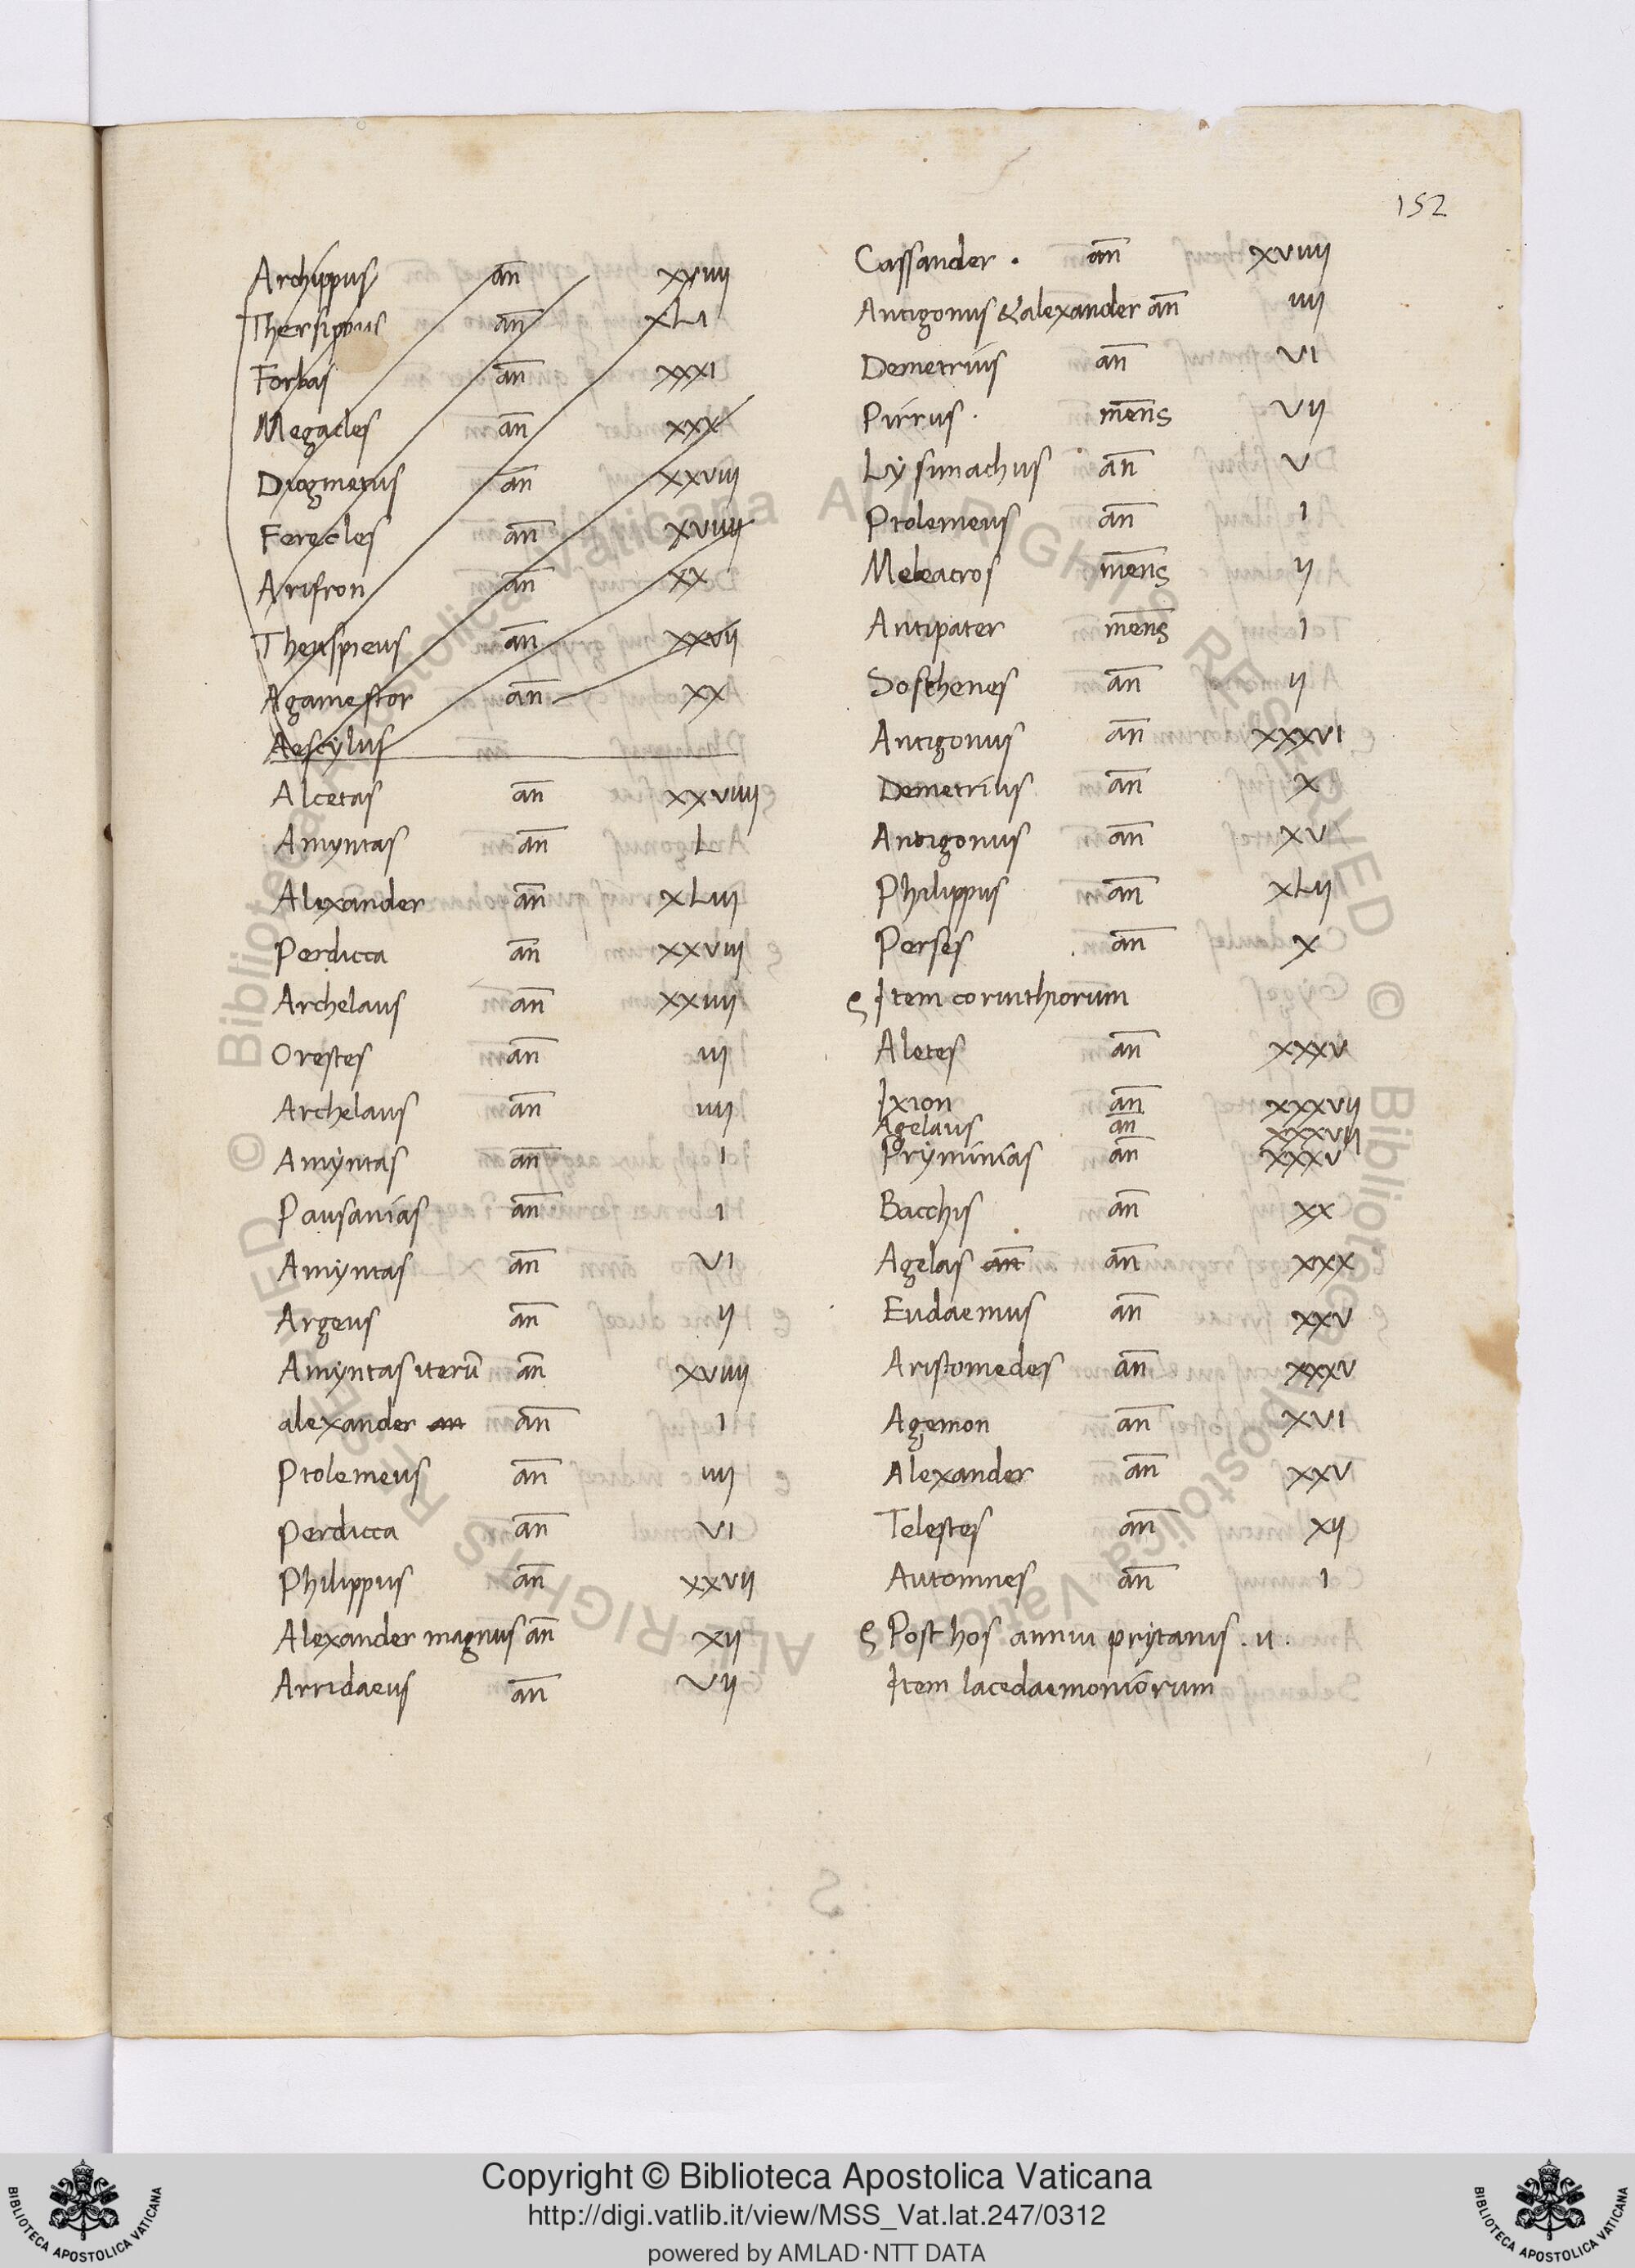 152
Archippus an̅ xxiiii
Thersippus an̅ xLi
Forbas an̅ xxxi
Megacles an̅ xxx
Diogmetus an̅ xxviii
Ferecles an̅ xviiii
Arifron an̅ xx
Thenspieus an̅ xxvii
Agamestor an̅ xx
Aescylus
Alcetas an̅ xxviiii
Amyntas an̅ L
Alexander an̅ xLiii
Perdicca an̅ xxviii
Archelaus an̅ xxiiii
Orestes an̅ iii
Archelaus an̅ iiii
Amyntas an̅ i
Pausanias an̅ i
Amyntas an̅ vi
Argeus an̅ ii
Amyntas iterū an̅ xviiii
alexander an an̅ i
Ptolemeus an̅ iiii
Perdicca an̅ vi
Philippus an̅ xxvii
Alexander magnus an̅ xii
Arridaeus an̅ vii
Cassander . an̅ xviiii
Antigonus & alexander an̅ iiii
Demetrius an̅ vi
Pirrus . men̅s vii
Lysimachus an̅ v
Ptolemeus an̅ i
Meleacros men̅s ii
Antipater men̅s i
Sosthenes an̅ ii
Antigonus an̅ xxxvi
Demetrius an̅ x
Antigonus an̅ xv
Philippus an̅ xLii
Perses an̅ x
Item corinthiorum
Aletes an̅ xxxv
Ixion an̅ xxxvii
Agelaus an̅ xxxvii
Pryminias an̅ xxxv
Bacchis an̅ xx
Agelas an̅ an̅ xxx
Eudaemus an̅ xxv
Aristomedes an̅ xxxv
Agemon an̅ xvi
Alexander an̅ xxv
Telestes an̅ xii
Automnes an̅ i
Post hos annui prytanis . ii .
Item lacedaemoniorum
© Biblioteca Apostolica Vaticana ALL RIGHTS RESERVED © Biblioteca Apostolica Vaticana ALL RIGHTS RESERVED
Copyright © Biblioteca Apostolica Vaticana
http://digi.vatlib.it/view/MSS_Vat.lat.247/0312
powered by AMLAD·NTT DATA
BIBLIOTECA APOSTOLICA VATICANA
BIBLIOTECA APOSTOLICA VATICANA